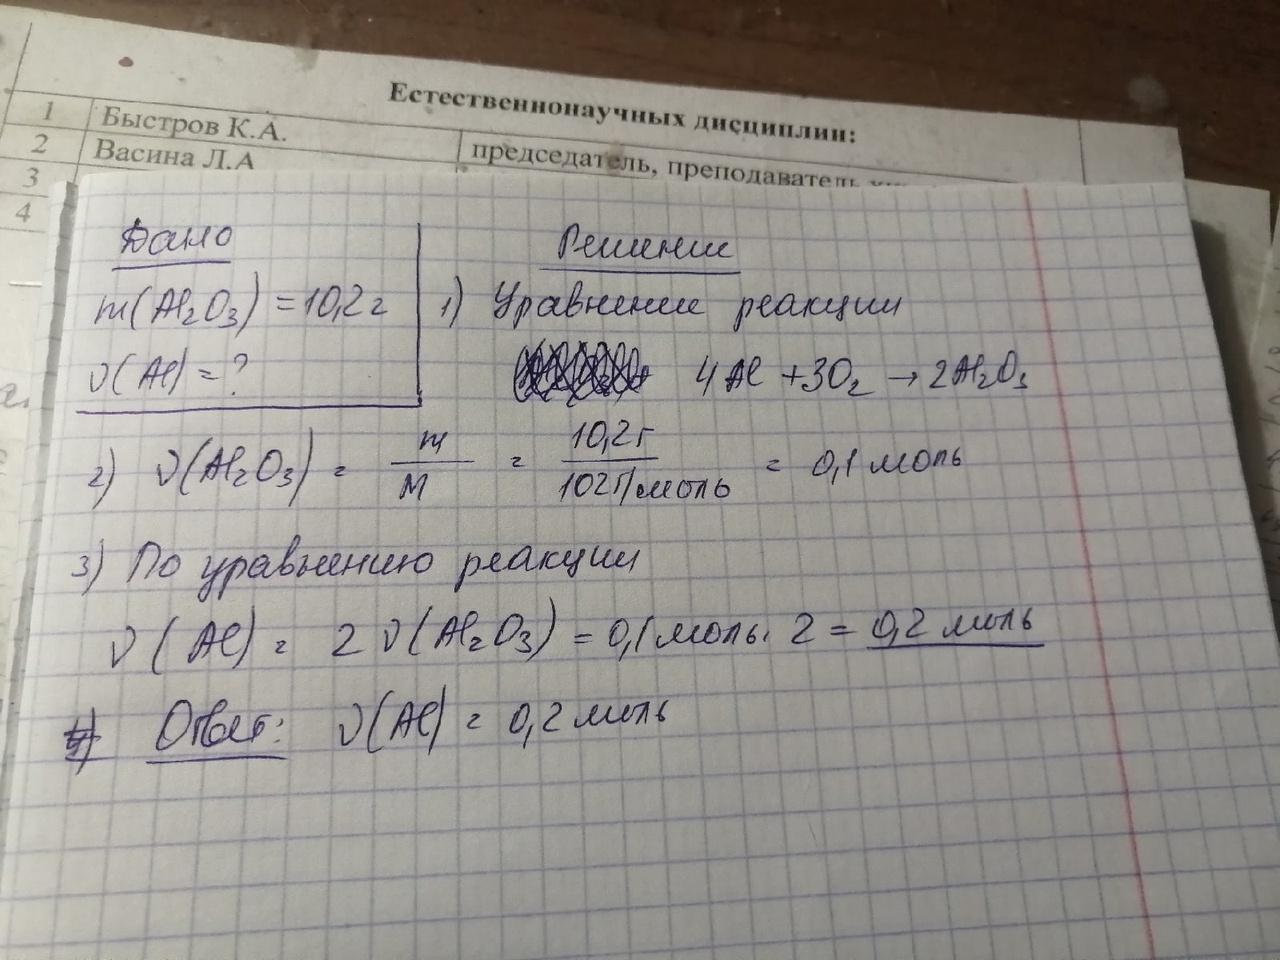 Естественнонаучных дисциплин:
1 Быстров К.А.
2 Васина Л.А председатель, преподаватель
3
4
Дано Решение
m(Al₂O₃) = 10,2 г 1) Уравнение реакции
ν(Al) = ? 4Al + 3O₂ → 2Al₂O₃
2) ν(Al₂O₃) = m/M = 10,2 г/102 г/моль = 0,1 моль
3) По уравнению реакции
ν(Al) = 2 ν(Al₂O₃) = 0,1 моль · 2 = 0,2 моль
Ответ: ν(Al) = 0,2 моль